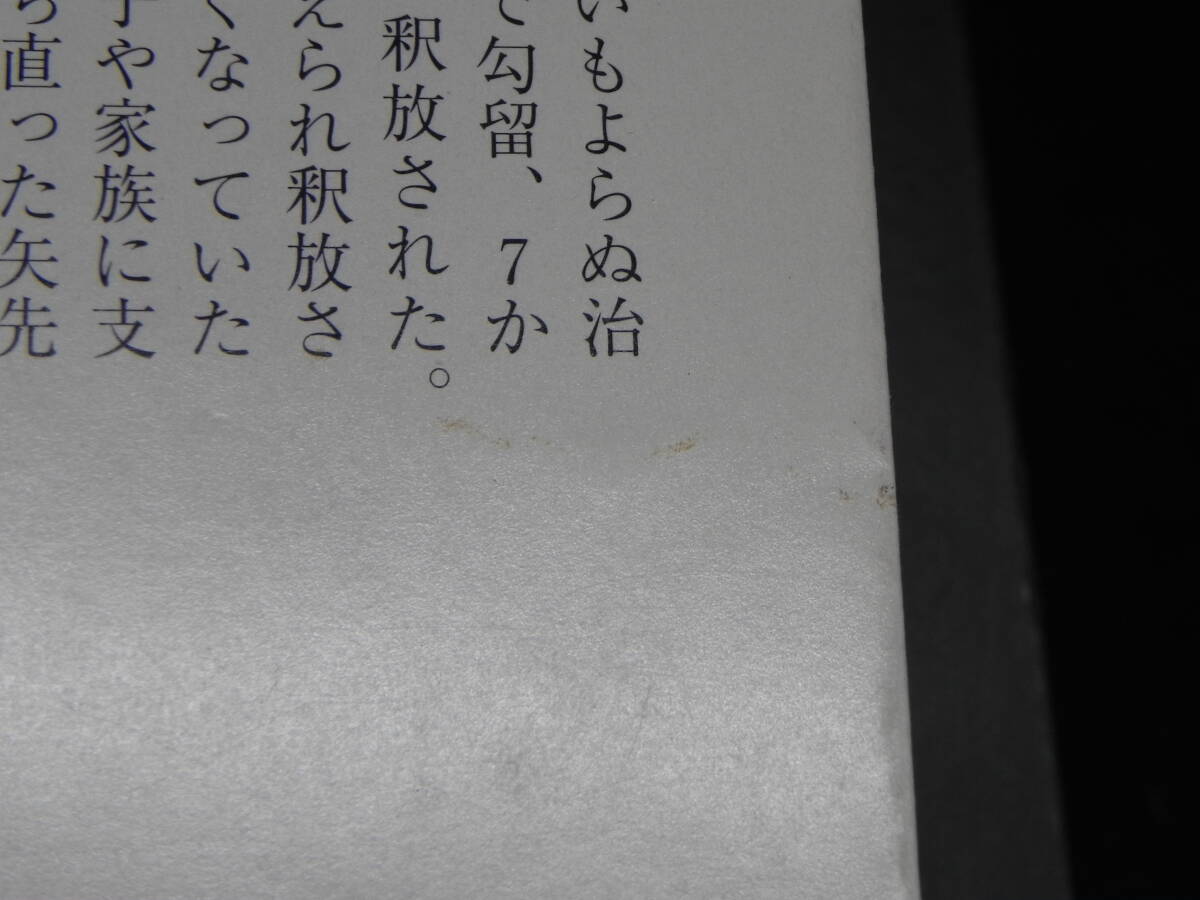 いもよらぬ治
で勾留、7か
釈放された。
えられ釈放さ
くなっていた
子や家族に支
ら直った矢先